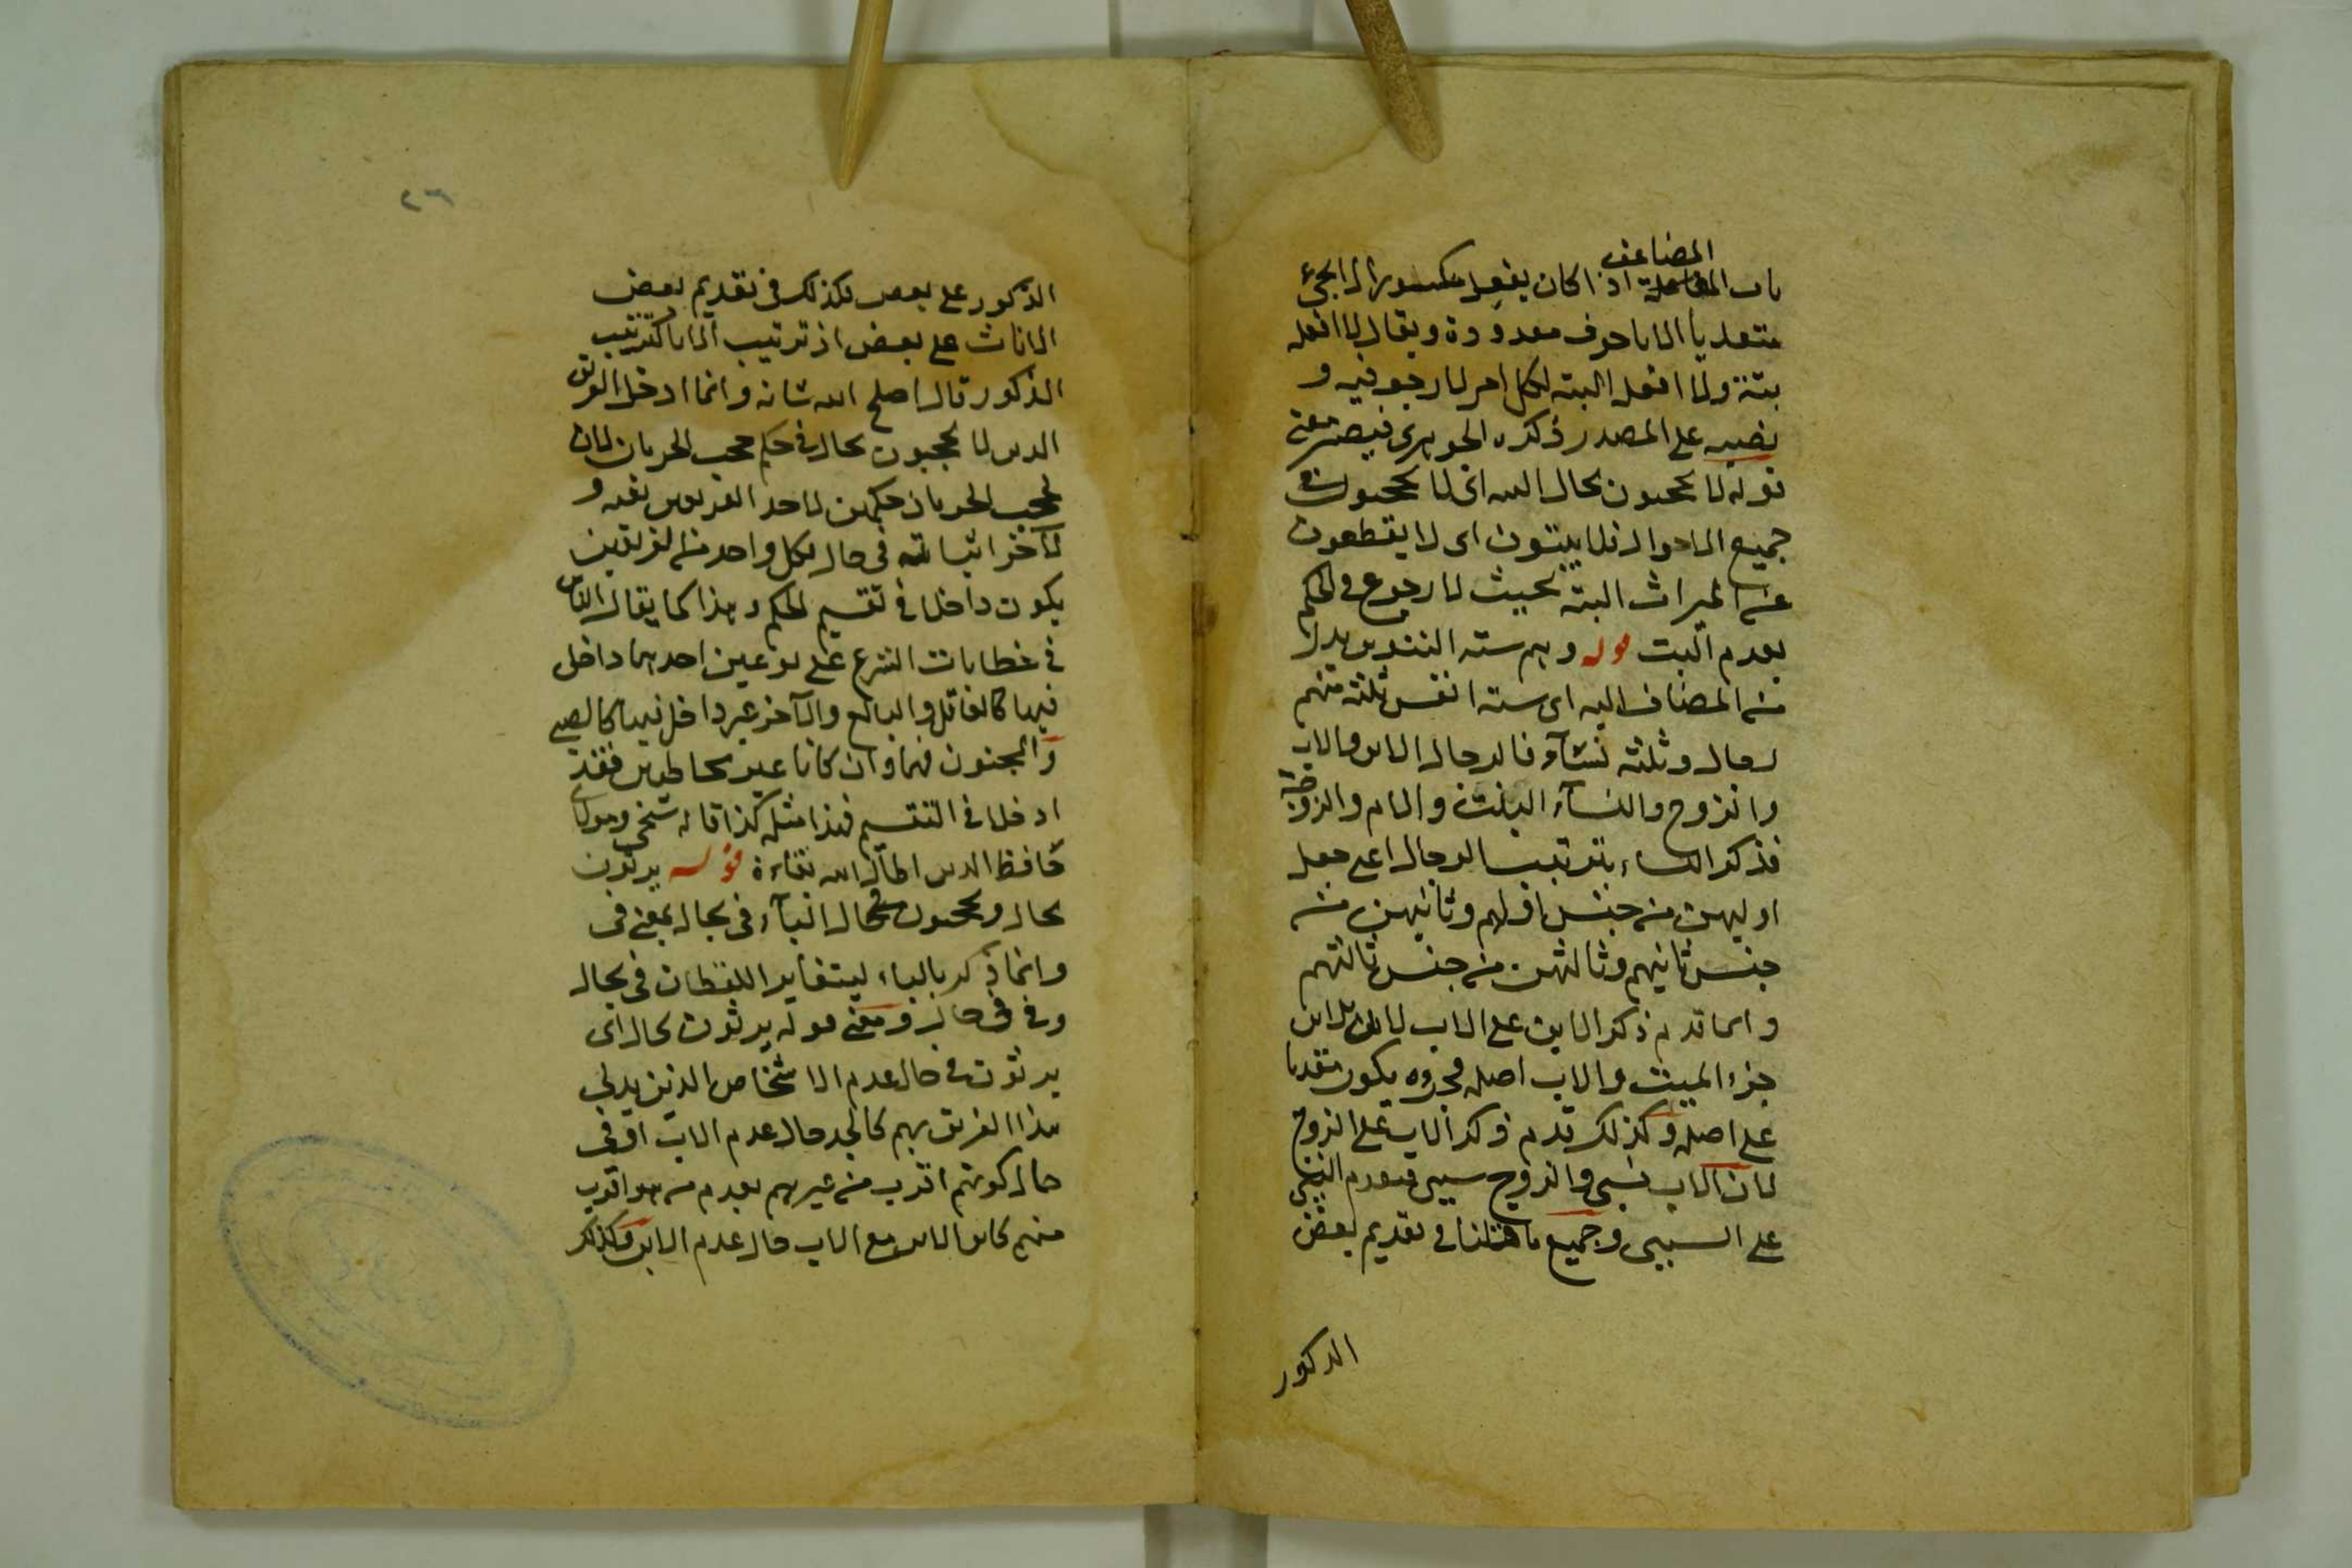 المضاعف
باب المفاعلة اذا كان يفعل مكسورا لا يجئ
متعديا الا باحرف معدودة ويقال لا افعله
بتة ولا افعله البتة لكل امر لا رجعة فيه و
نصبه على المصدر ذكره الجوهرى فيصير معنى
قوله لا يحجبون بحال البتة اى لا يحجبون فى
جميع الاحوال فلا يبتون اى لا يقطعون
عن الميراث البتة بحيث لا رجوع فى الحكم
بعدم البت قوله وهم ستة التنوين بدل
من المضاف اليه اى ستة انفس ثلثة منهم
رجال وثلثة نسآء فالرجال الابن والاب
والزوج والنسآء البنت والام والزوجة
فذكر النساء بترتيب الرجال اعنى جعل
اوليهن من جنس اولهم وثانيهن من
جنس ثانيهم وثالثهن من جنس ثالثهم
وانما قدم ذكر الابن على الاب لان الابن
جزء الميت والاب اصله فجزوه يكون مقدما
على اصله وكذلك قدم ذكر الاب على الزوج
لان الاب نسبى والزوج سببى فيقدم النسبى
على السببى وجميع ما قلنا فى تقديم بعض
الذكور
٢٦
الذكور على بعض فكذلك فى تقديم بعض
الاناث على بعض اذ ترتيب الاناث كترتيب
الذكور قال اصلح الله شانه وانما ادخل الفريق
الذين لا يحجبون بحال فى حكم حجب الحرمان لان
لحجب الحرمان حكمين لاحد الفريقين نفيه و
لآخر اثباته فى حال فكل واحد من الفريقين
يكون داخلا فى تقسيم الحكم وهذا كما يقال الناس
فى خطابات الشرع على نوعين احدهما داخل
فيها كالعاقل والبالغ والآخر غير داخل فيها كالصبى
والمجنون فهما وان كانا غير مخاطبين فقد
ادخلا فى التقسيم فهذا مثله كذا قاله شيخى ومولاى
حافظ الدين اطال الله بقاءه قوله يرثون
بحال ويحجبون بحال البآء فى بحال بمعنى فى
وانما ذكر بالباء ليتغاير اللفظان فى بحال
وفى فى حال ومعنى قوله يرثون بحال اى
يرثون فى حال عدم الاشخاص الذين يدلى
هذا الفريق بهم كالجد حال عدم الاب او فى
حال كونهم اقرب من غيرهم بعدم من هو اقرب
منهم كابن الابن مع الاب حال عدم الابن وكذلك